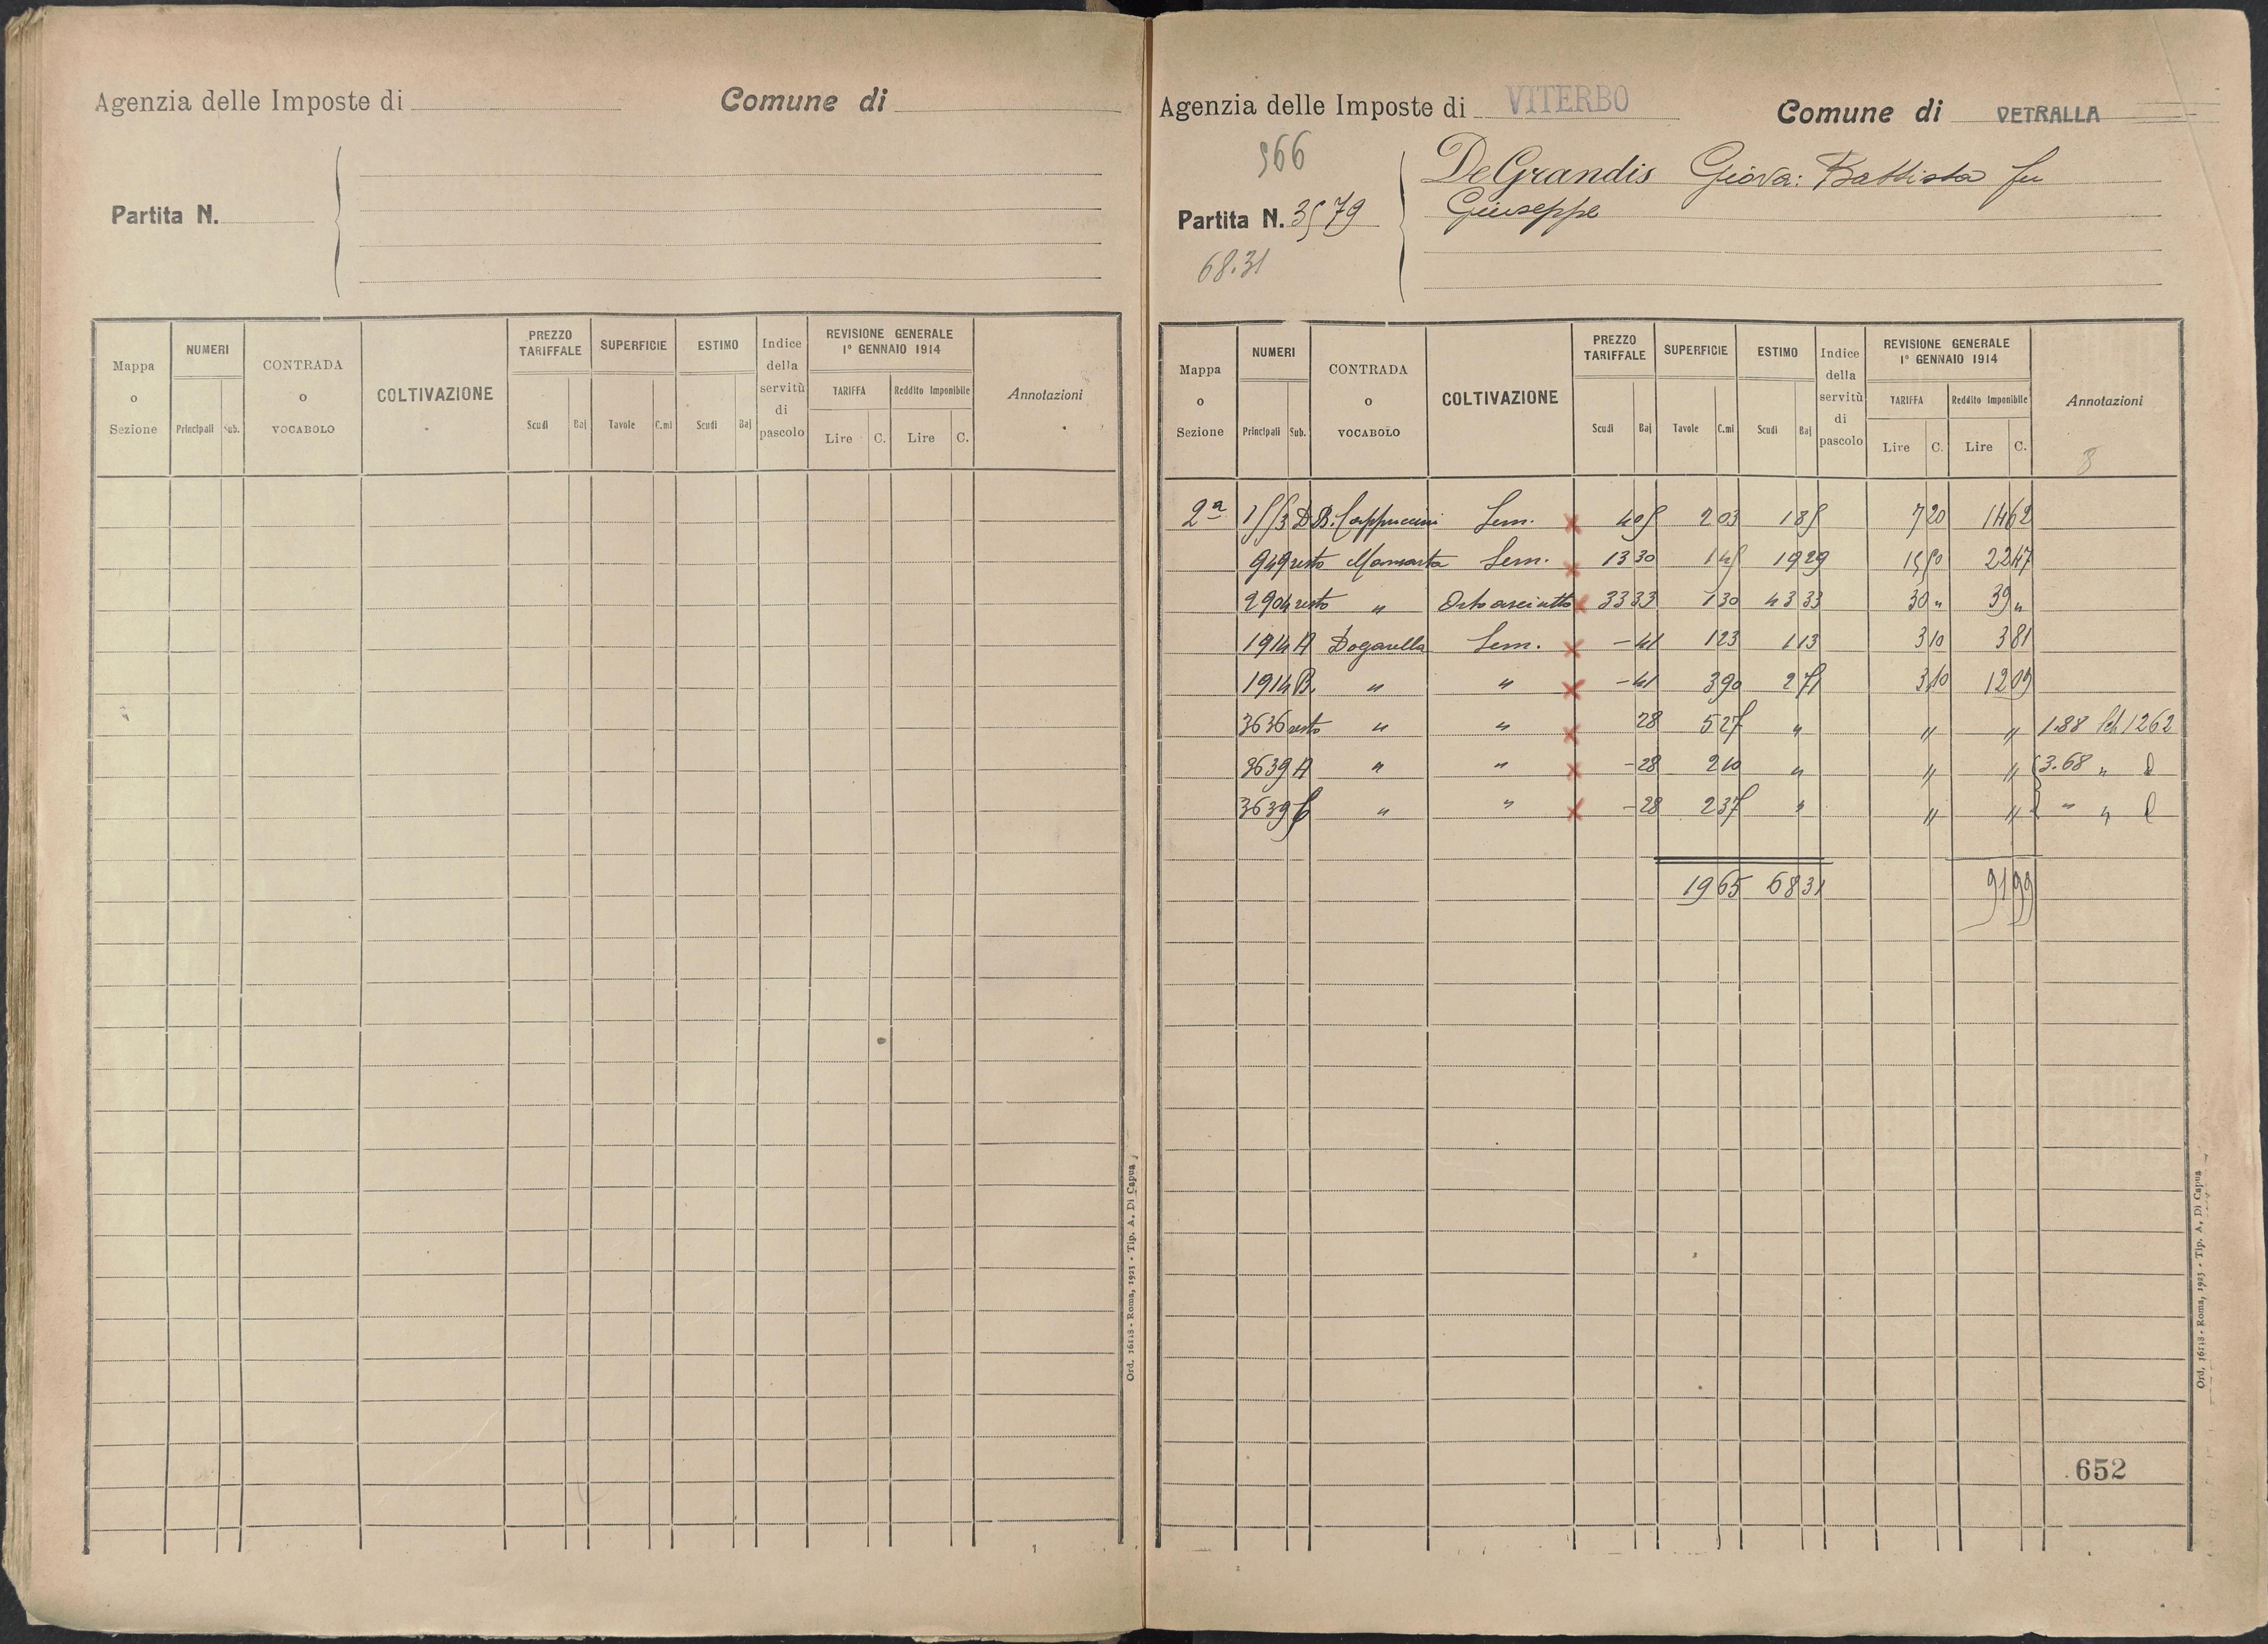 Agenzia delle Imposte di
Comune di
Partita N.
Mappa o Sezione
NUMERI
Principali Sub.
CONTRADA o VOCABOLO
COLTIVAZIONE
PREZZO TARIFFALE
Scudi Baj
SUPERFICIE
Tavole C.mi
ESTIMO
Scudi Baj
Indice della servitù di pascolo
REVISIONE GENERALE
1° GENNAIO 1914
TARIFFA
Lire C.
Reddito Imponibile
Lire C.
Annotazioni
Ord. 16118 - Roma, 1923 - Tip. A. Di Capua
1
Agenzia delle Imposte di VITERBO
Comune di VETRALLA
566
Partita N. 3579
68.31
De Grandis Giova: Battista fu
Giuseppe
Mappa o Sezione
NUMERI
Principali Sub.
CONTRADA o VOCABOLO
COLTIVAZIONE
PREZZO TARIFFALE
Scudi Baj
SUPERFICIE
Tavole C.mi
ESTIMO
Scudi Baj
Indice della servitù di pascolo
REVISIONE GENERALE
1° GENNAIO 1914
TARIFFA
Lire C.
Reddito Imponibile
Lire C.
Annotazioni
8
2ª Cappuccini Sem. x 2 03 7 20 14 62
949 resto Sem. x 13 30 1 45 19 29 15 50 22 47
2904 resto " Orto asciutto x 33 33 1 30 43 33 30 " 39 "
1914 A Dogarella Sem. x - 41 1 23 3 10 3 81
1914 B. " " x - 41 3 90 3 10 12 09
3636 resto " " x 28 5 27 " " " 1.88 1262
3639 A " " x - 28 2 10 " " " 3.68 "
3639 " " x - 28 2 37 " " " " "
19 65 68 31 91 99
652
Ord. 16118 - Roma, 1923 - Tip. A. Di Capua